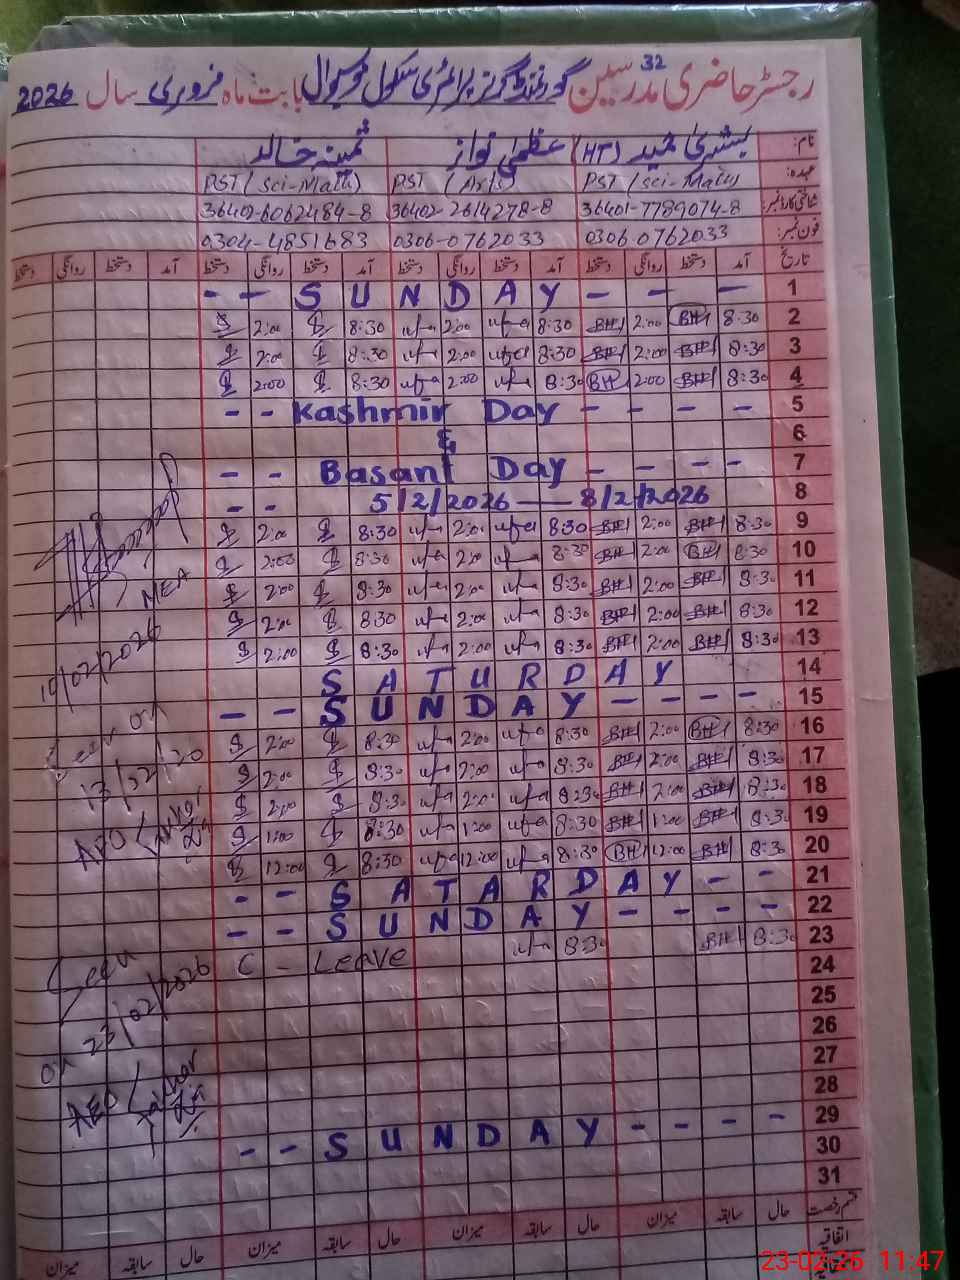 32
رجسٹر حاضری مدرسین گورنمنٹ گرلز پرائمری سکول بابت ماہ فروری سال 2026
نام: بشریٰ حمید (HT) عظمیٰ نواز ثمینہ خالد
عہدہ: PST (Sci-Math) PST (Arts) PST (Sci-Math)
شناختی کارڈ نمبر: 36401-7789074-8 36402-2614278-8 36402-6062484-8
فون نمبر: 0306-0762033 0306-0762033 0304-4851683
تاریخ آمد دستخط روانگی دستخط آمد دستخط روانگی دستخط آمد دستخط روانگی دستخط آمد دستخط روانگی دستخط
1 - - SUNDAY - - -
2 8:30 BH 2:00 BH 8:30 2:00 8:30 2:00
3 8:30 BH 2:00 BH 8:30 2:00 8:30 2:00
4 8:30 BH 2:00 BH 8:30 2:00 8:30 2:00
5 - - Kashmir Day - - - -
6 &
7 - - Basant Day - - - -
8 - - 5/2/2026 — 8/2/2026
9 8:30 BH 2:00 BH 8:30 2:00 8:30 2:00
10 8:30 BH 2:00 BH 8:30 2:00 8:30 2:00
11 8:30 BH 2:00 BH 8:30 2:00 8:30 2:00
MEA
12 8:30 BH 2:00 BH 8:30 2:00 8:30 2:00
13 8:30 BH 2:00 BH 8:30 2:00 8:30 2:00
10/02/2026
14 SATURDAY
15 - - SUNDAY - - - -
16 8:30 BH 2:00 BH 8:30 2:00 8:30 2:00
17 8:30 BH 2:00 BH 8:30 2:00 8:30 2:00
18 8:30 BH 2:00 BH 8:30 2:00 8:30 2:00
19 8:30 BH 1:00 BH 8:30 1:00 8:30 1:00
20 8:30 BH 12:00 BH 8:30 12:00 8:30 12:00
21 - - SATARDAY - -
22 - - SUNDAY - - - -
23 8:30 BH 8:30 C - Leave
24
Seen
on 23/02/2026
25
26
27
28
AEO
29 - - SUNDAY - - - -
30
31
قسم رخصت حال سابقہ میزان حال سابقہ میزان حال سابقہ میزان حال سابقہ میزان
اتفاقیہ
23-02-26 11:47